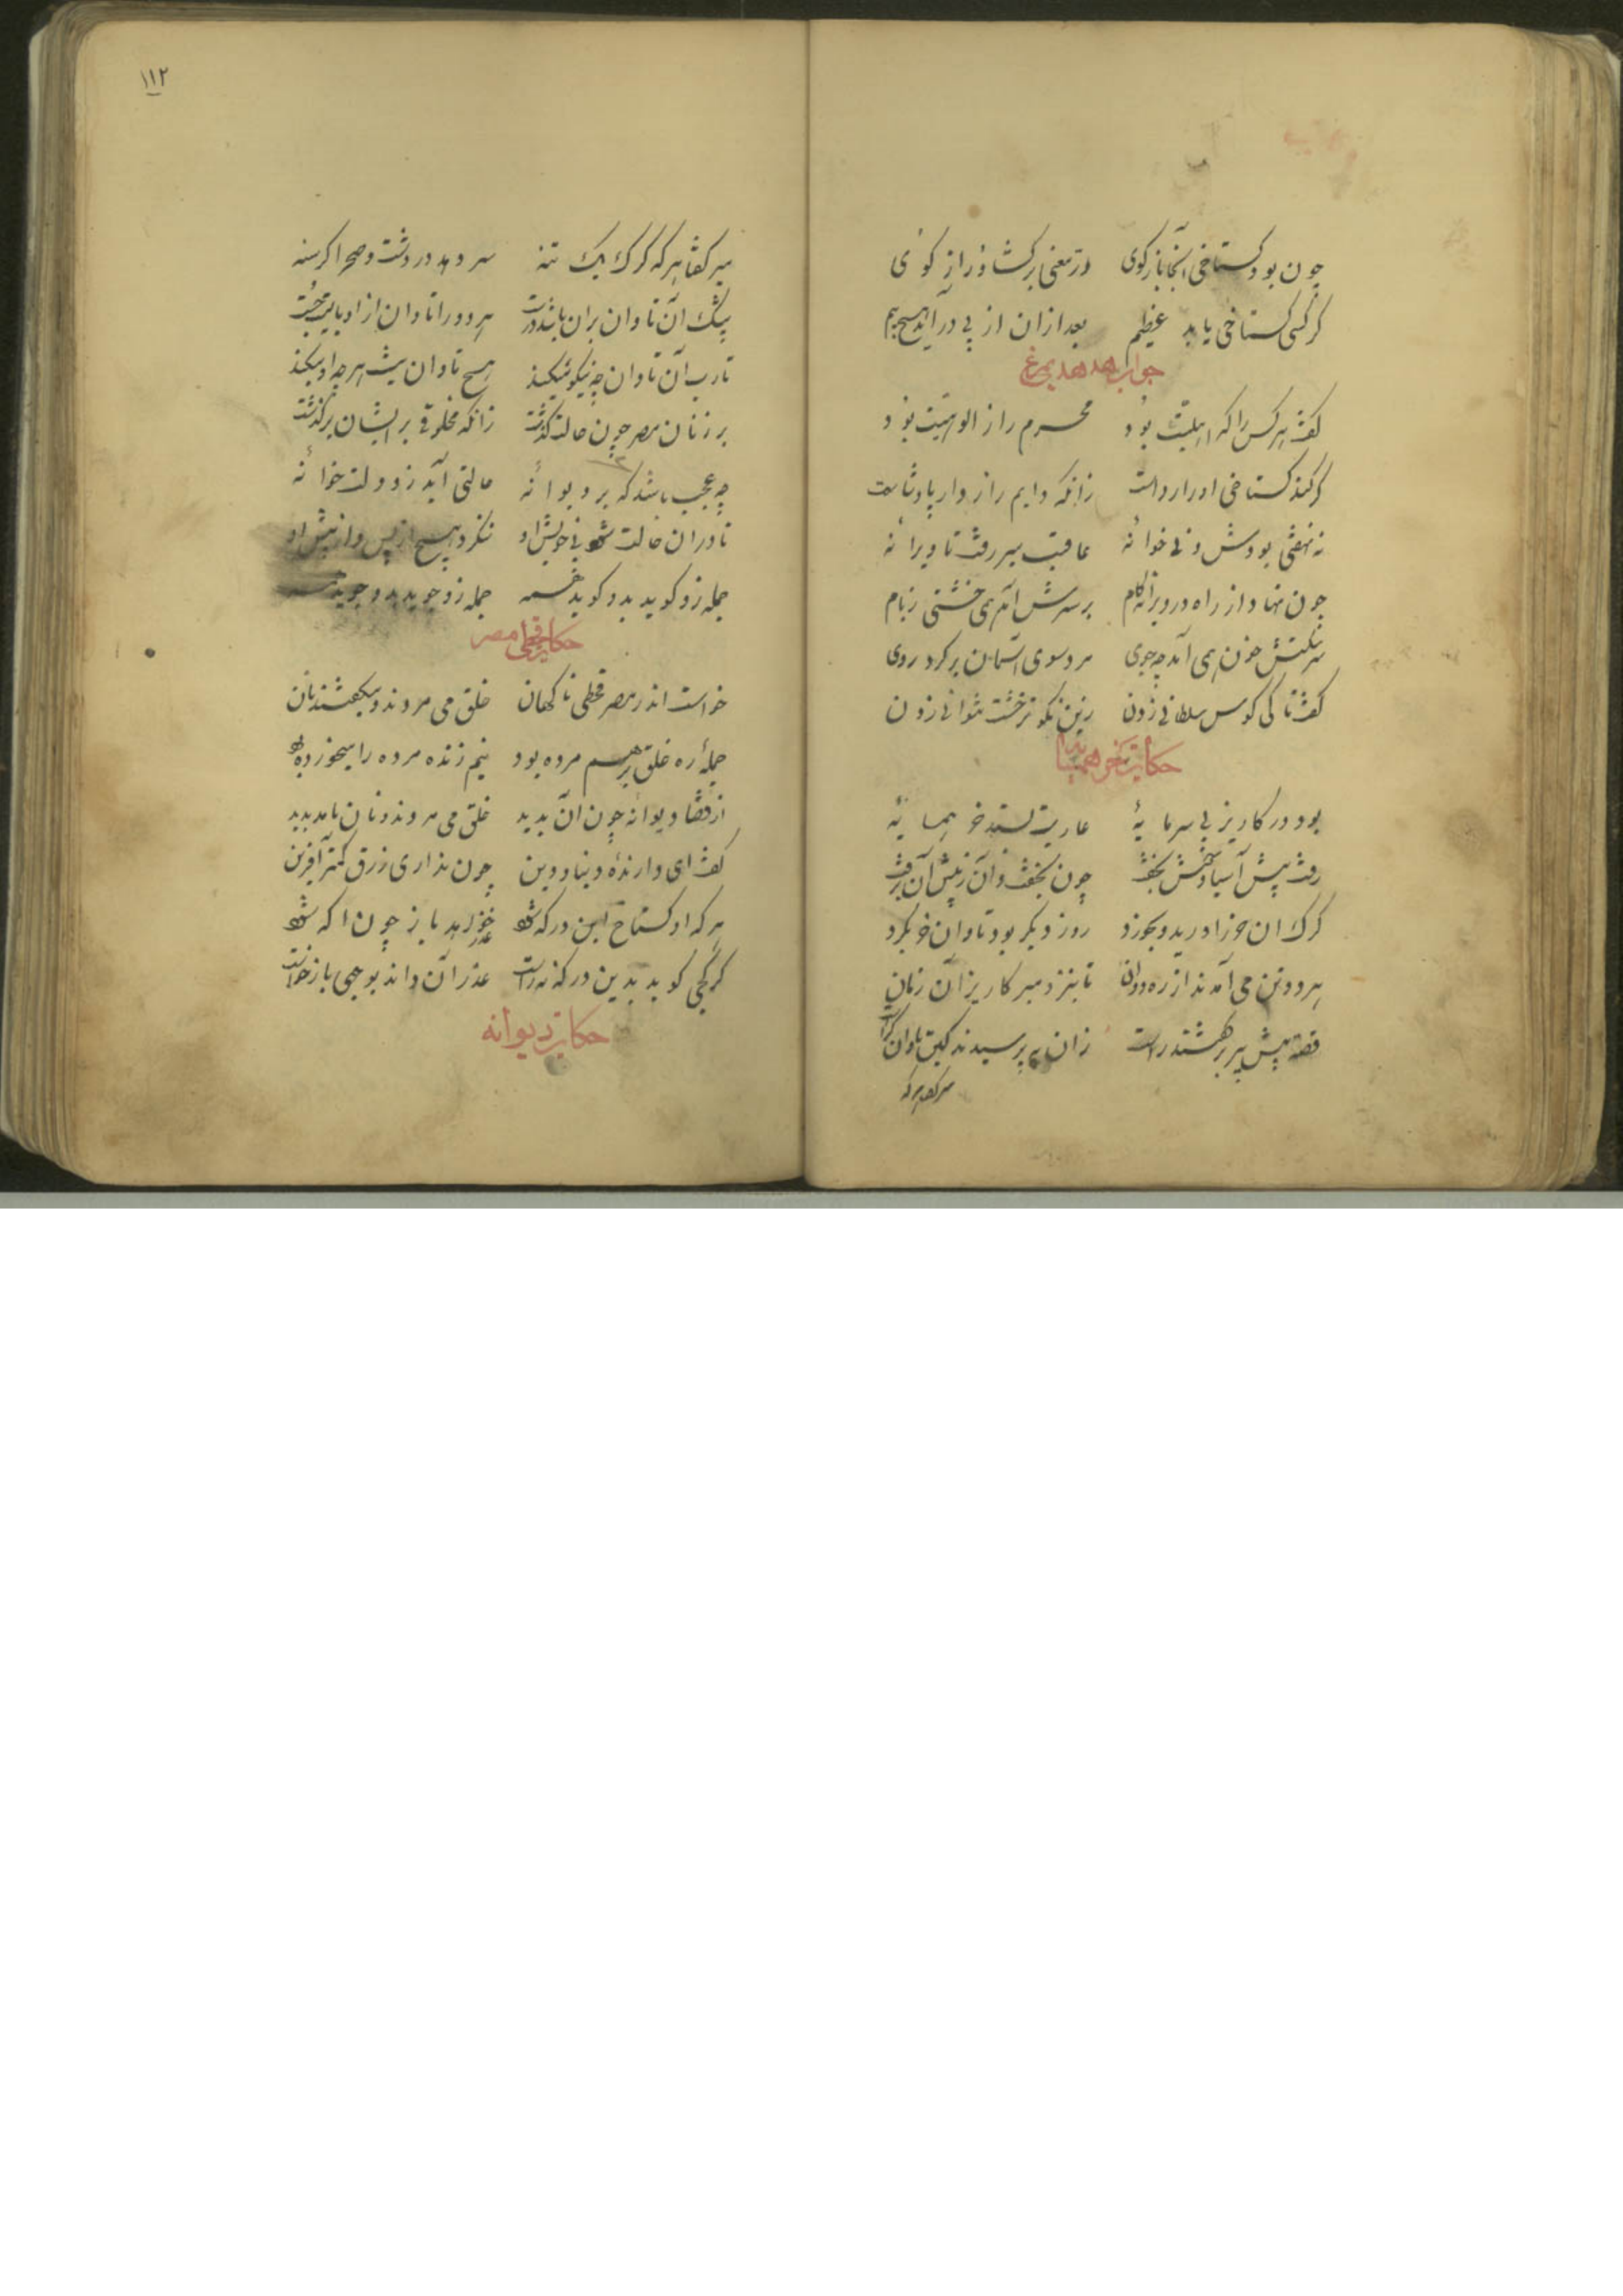 چون بود گستاخی آنجا بازگوی در معنی برگشا و راز گوئی
گر کسی گستاخی یابد عظیم بعد ازان از پی درآید هیچ بیم
جواب هدهد بمرغ
گفت هر کس را که اهلیت بود محرم راز الوهیت بود
گر کند گستاخی او را رواست زانکه دایم رازدار پادشاست
نه نهفتی بودش و نی خوانهٔ عاقبت میرفت تا ویرانهٔ
چون نهاد از راه در ویرانه گام بر سرش آمد همی خشتی ز بام
سر شکستش خون همی آمد چو جوی مرد سوی آسمان برکرد روی
گفت تا کی کوس سلطانی زدن زین نکوتر خشت نتوانی زدن
حکایت خر همسایه
بود در کاریز بی سرمایهٔ عاریت بستد خر همسایهٔ
رفت پیش آسیا و خوش بخفت چون بخفت و آن ز پیش آن برفت
گرگ آن خر را درید و بخورد روز دیگر بود تاوان خر بکرد
هر دو تن می آمدند از ره دوان تا بنزد میر کاریز آن زمان
قصه پیش میر برگشتند راست زان بپرسیدند کین تاوان کراست
میر گفت هر که
۱۱۲
میر گفتا هر که گرگ یک تنه سر دهد در دشت و صحرا گرسنه
بیشک آن تاوان بران باشد درست هر دو را تاوان ازو بایست جست
یا رب آن تاوان چه نیکو میکند هیچ تاوان نیست هر چه او میکند
بر زنان مصر چون حالت گذشت زانکه مخلوقی بر ایشان برگذشت
چه عجب باشد که بر دیوانهٔ حالتی آید ز دولت خوانهٔ
تا دران حالت شود بی خویش او ننگرد هیچ از پس و از پیش او
جمله زو گوید بدو گوید همه جمله زو جوید بدو جوید همه
حکایت قحطی مصر
خواست اندر مصر قحطی ناگهان خلق می مردند و میگفتند نان
جملهٔ ره خلق بر هم مرده بود نیم زنده مرده را میخورده بود
از قضا دیوانه چون آن بدید خلق می مردند و نان نامد پدید
گفت ای دارندهٔ دنیا و دین چون نداری رزق کمتر آفرین
هر که او گستاخ این درگه شود عذر خواهد باز چون آگه شود
گر کجی گوید بدین درگه نه راست عذر آن داند بوجهی باز خواست
حکایت دیوانه